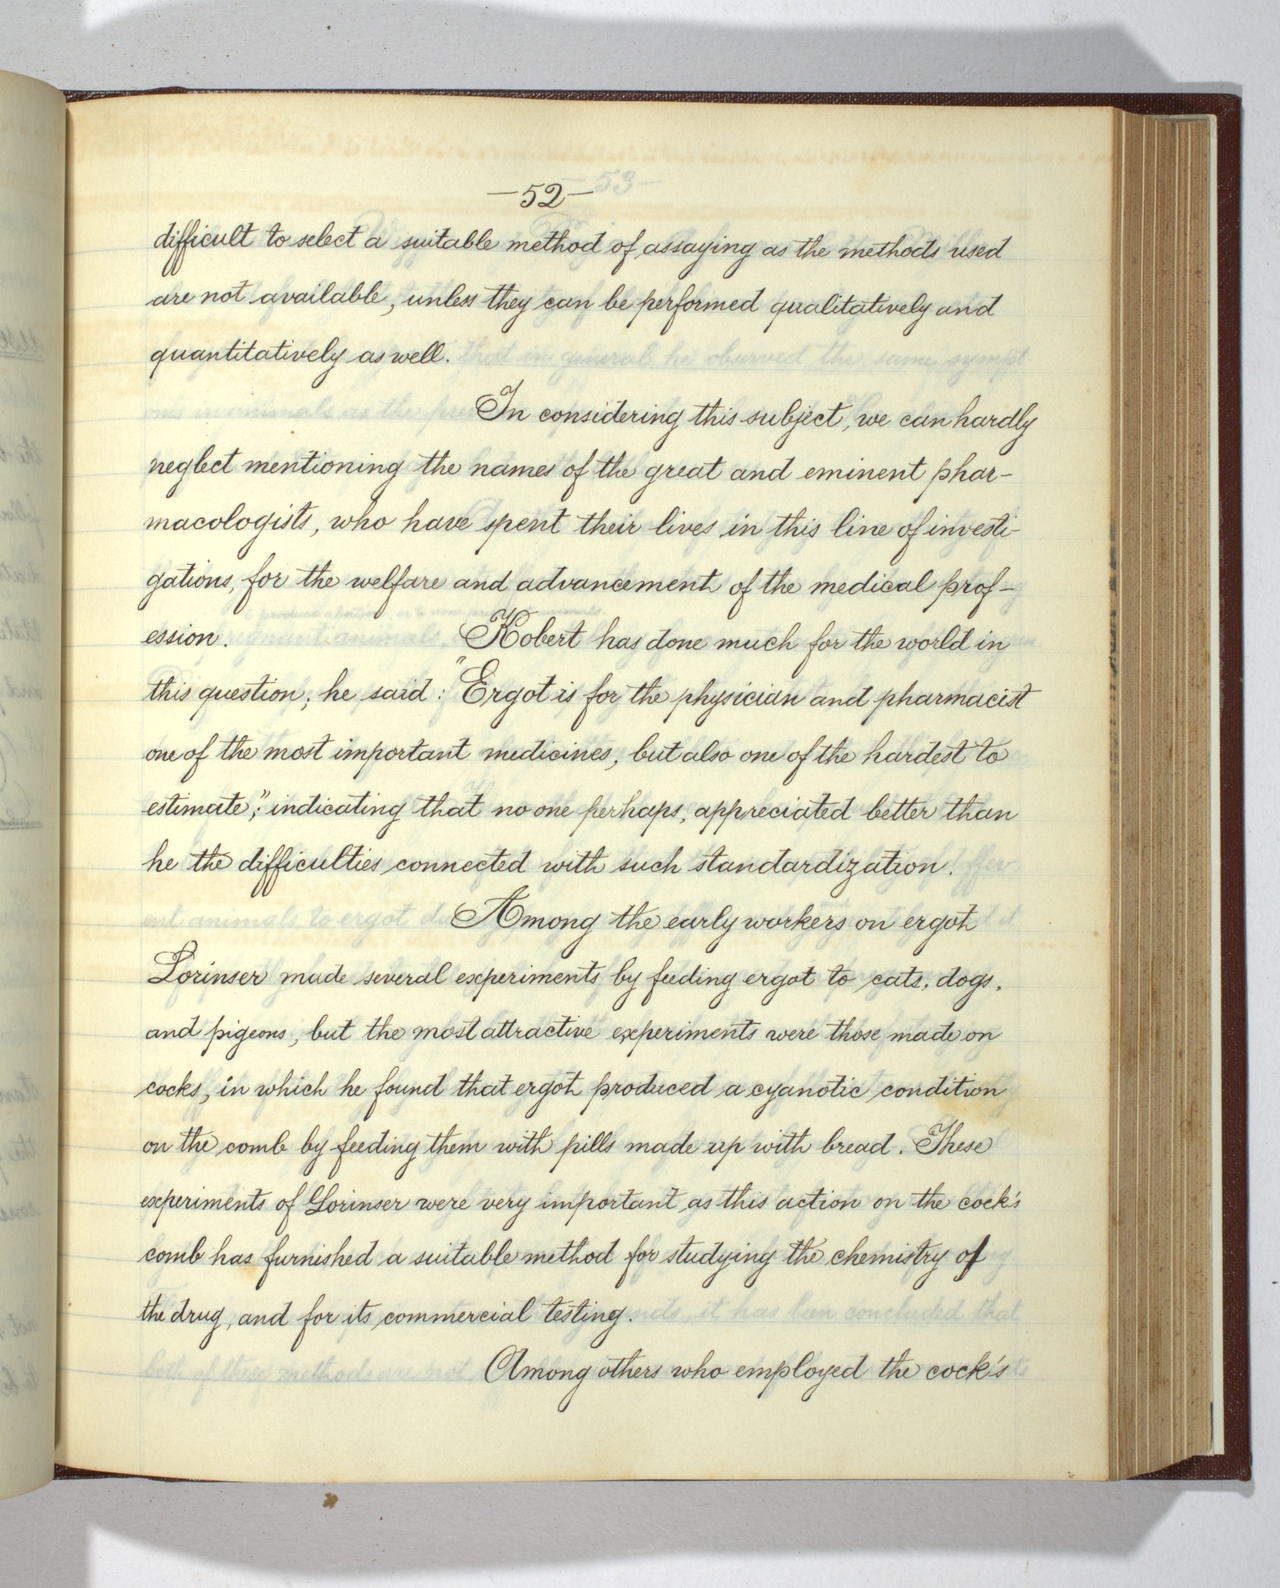 —52—
difficult to select a suitable method of assaying as the methods used
are not available, unless they can be performed qualitatively and
quantitatively as well.
In considering this subject, we can hardly
neglect mentioning the names of the great and eminent phar-
macologists, who have spent their lives in this line of investi-
gations, for the welfare and advancement of the medical prof-
ession. Kobert has done much for the world in
this question; he said: "Ergot is for the physician and pharmacist
one of the most important medicines, but also one of the hardest to
estimate"; indicating that no one perhaps, appreciated better than
he the difficulties connected with such standardization.
Among the early workers on ergot
Lorinser made several experiments by feeding ergot to cats, dogs,
and pigeons, but the most attractive experiments were those made on
cocks, in which he found that ergot produced a cyanotic condition
on the comb by feeding them with pills made up with bread. These
experiments of Lorinser were very important as this action on the cock's
comb has furnished a suitable method for studying the chemistry of
the drug, and for its commercial testing.
Among others who employed the cock's